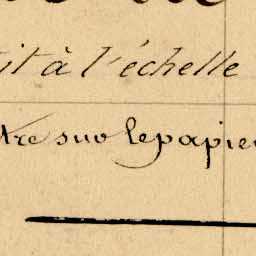 it à l'échelle
tre sur le papier